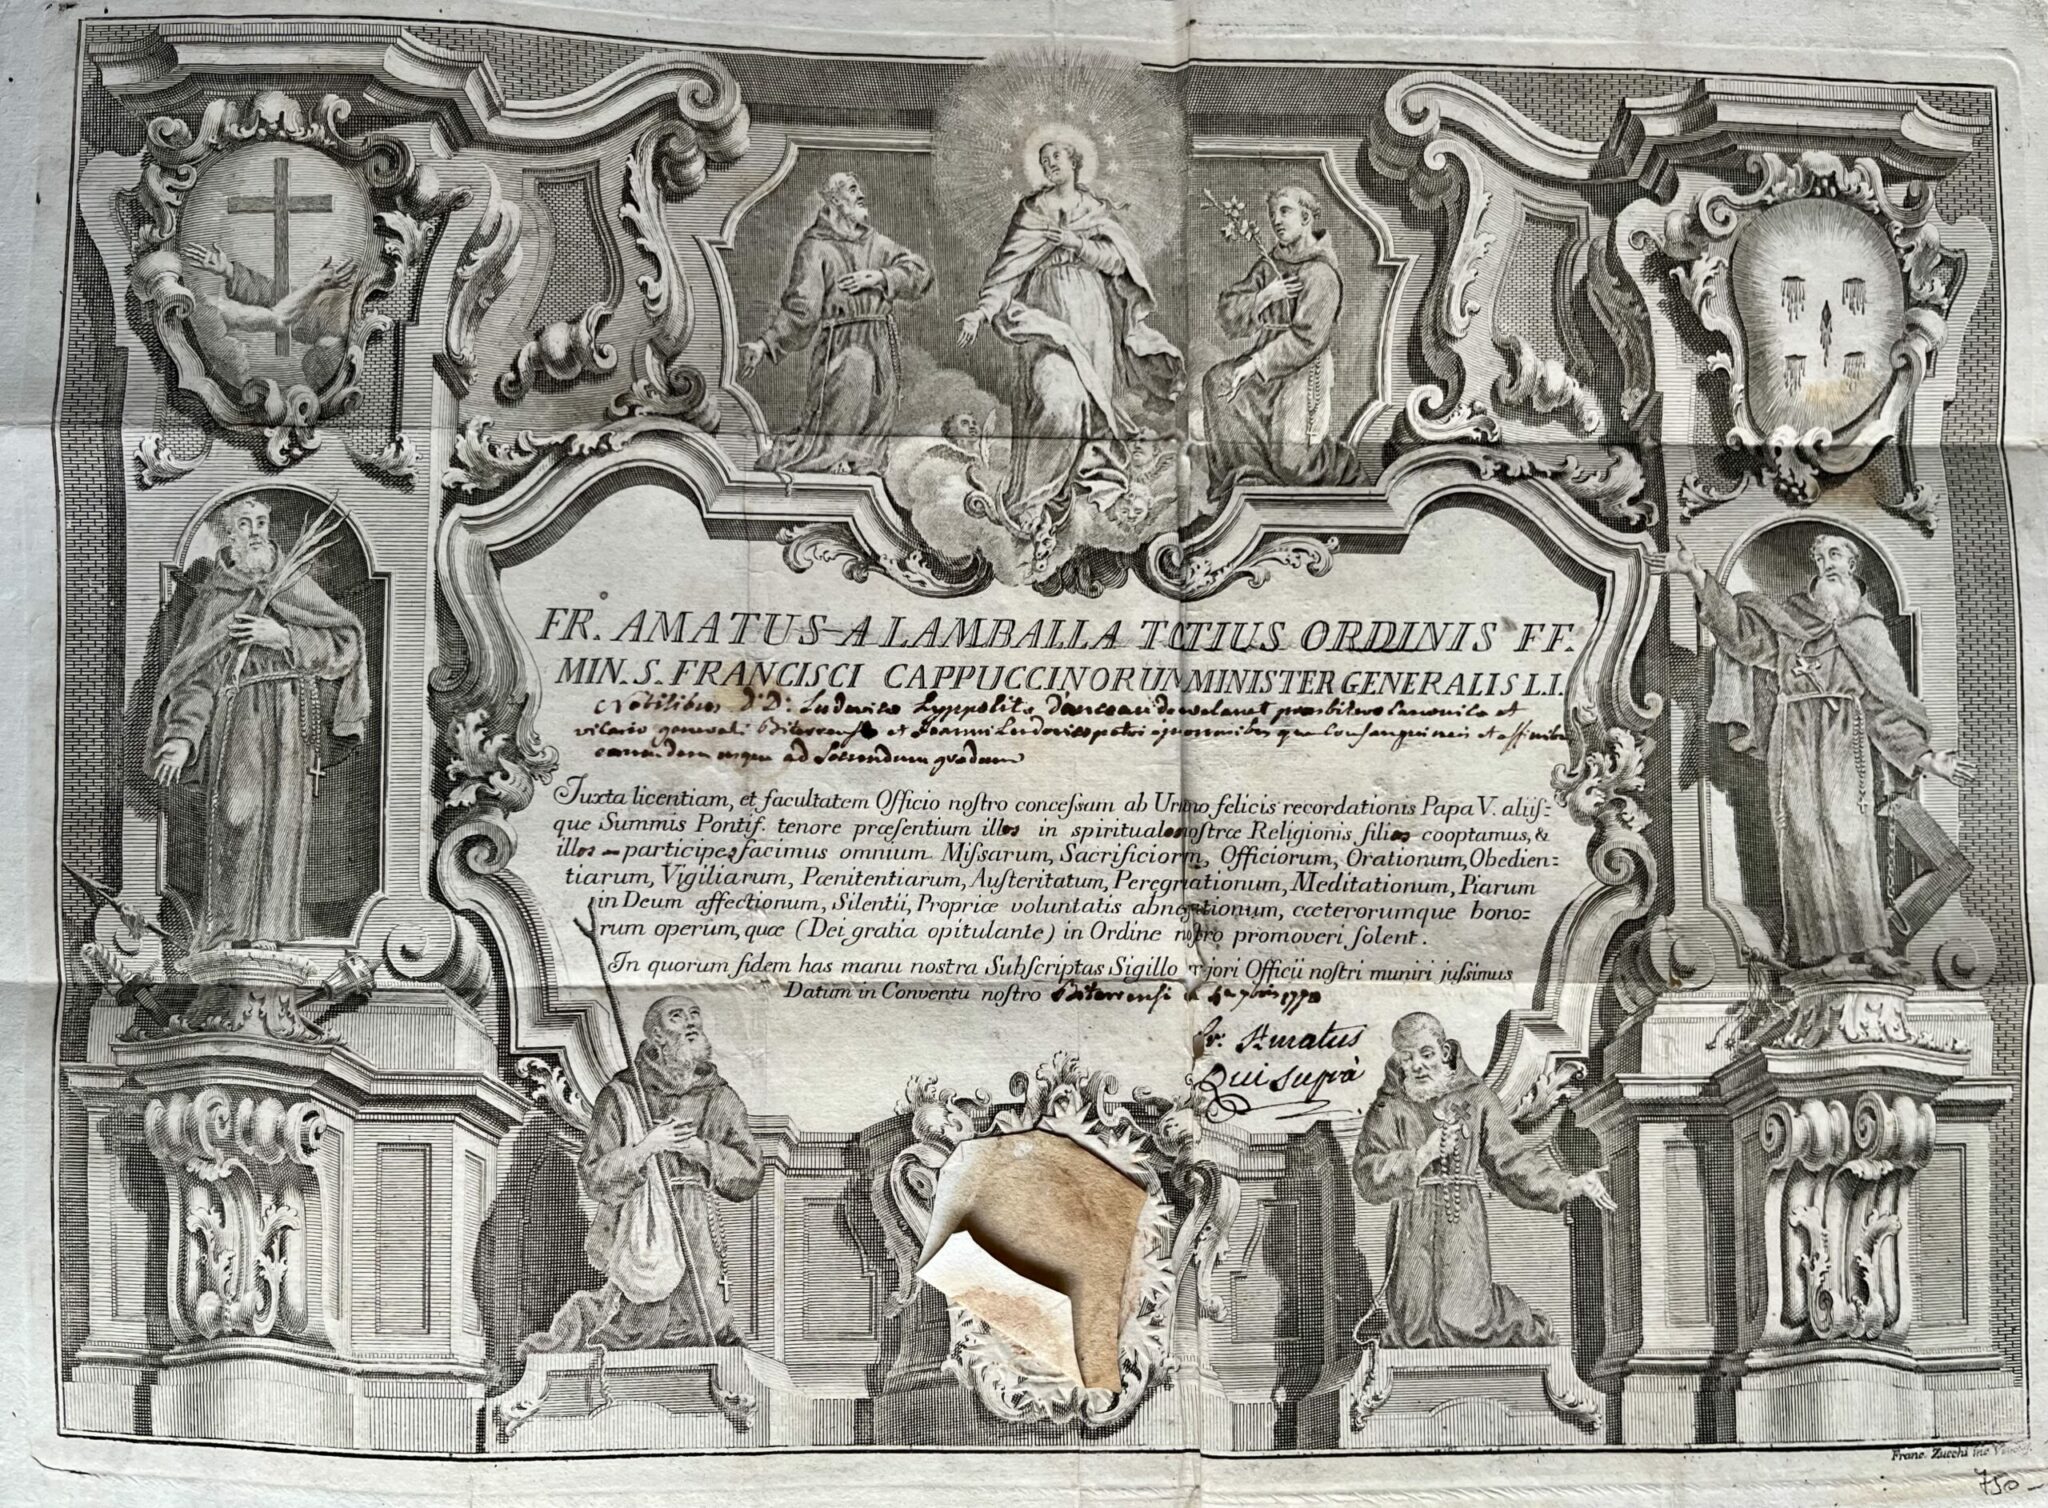 FR. AMATUS A LAMBALLA TOTIUS ORDINIS FF.
MIN. S. FRANCISCI CAPPUCCINORUM MINISTER GENERALIS L.I.
Nobilibus D.D. Ludovico Hyppolito presbitero canonico et
vicario generali Biterrensi et Joanni Ludovico patri consanguineis et affinibus
eorumdem usque ad secundum gradum
Juxta licentiam, et facultatem Officio noſtro conceſsam ab Urbano felicis recordationis Papa V. aliiſ-
que Summis Pontif. tenore præſentium illos in spirituales noſtræ Religionis filios cooptamus, &
illos participes facimus omnium Miſsarum, Sacrificiorum, Officiorum, Orationum, Obedien=
tiarum, Vigiliarum, Pœnitentiarum, Auſteritatum, Peregrinationum, Meditationum, Piarum
in Deum affectionum, Silentii, Propriæ voluntatis abnegationum, cæterorumque bono=
rum operum, quæ (Dei gratia opitulante) in Ordine noſtro promoveri ſolent.
In quorum fidem has manu nostra Subſcriptas Sigillo majori Officii noſtri muniri juſsimus
Datum in Conventu noſtro Biterrensi 1770
fr. Amatus
Qui supra
Franc. Zucchi inc.
750-